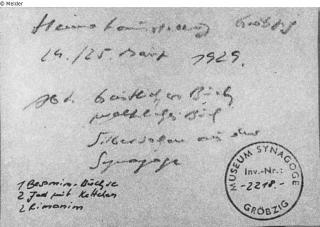 © Melder
Heimatausstellung Gröbzig
24./25. Mart 1929.
Abt.
Silbersachen aus der
Synagoge
1 Besomim-Büchse
2 Jad mit Kettchen
2 Rimonim
MUSEUM SYNAGOGE
Inv.-Nr.:
-2218.-
GRÖBZIG